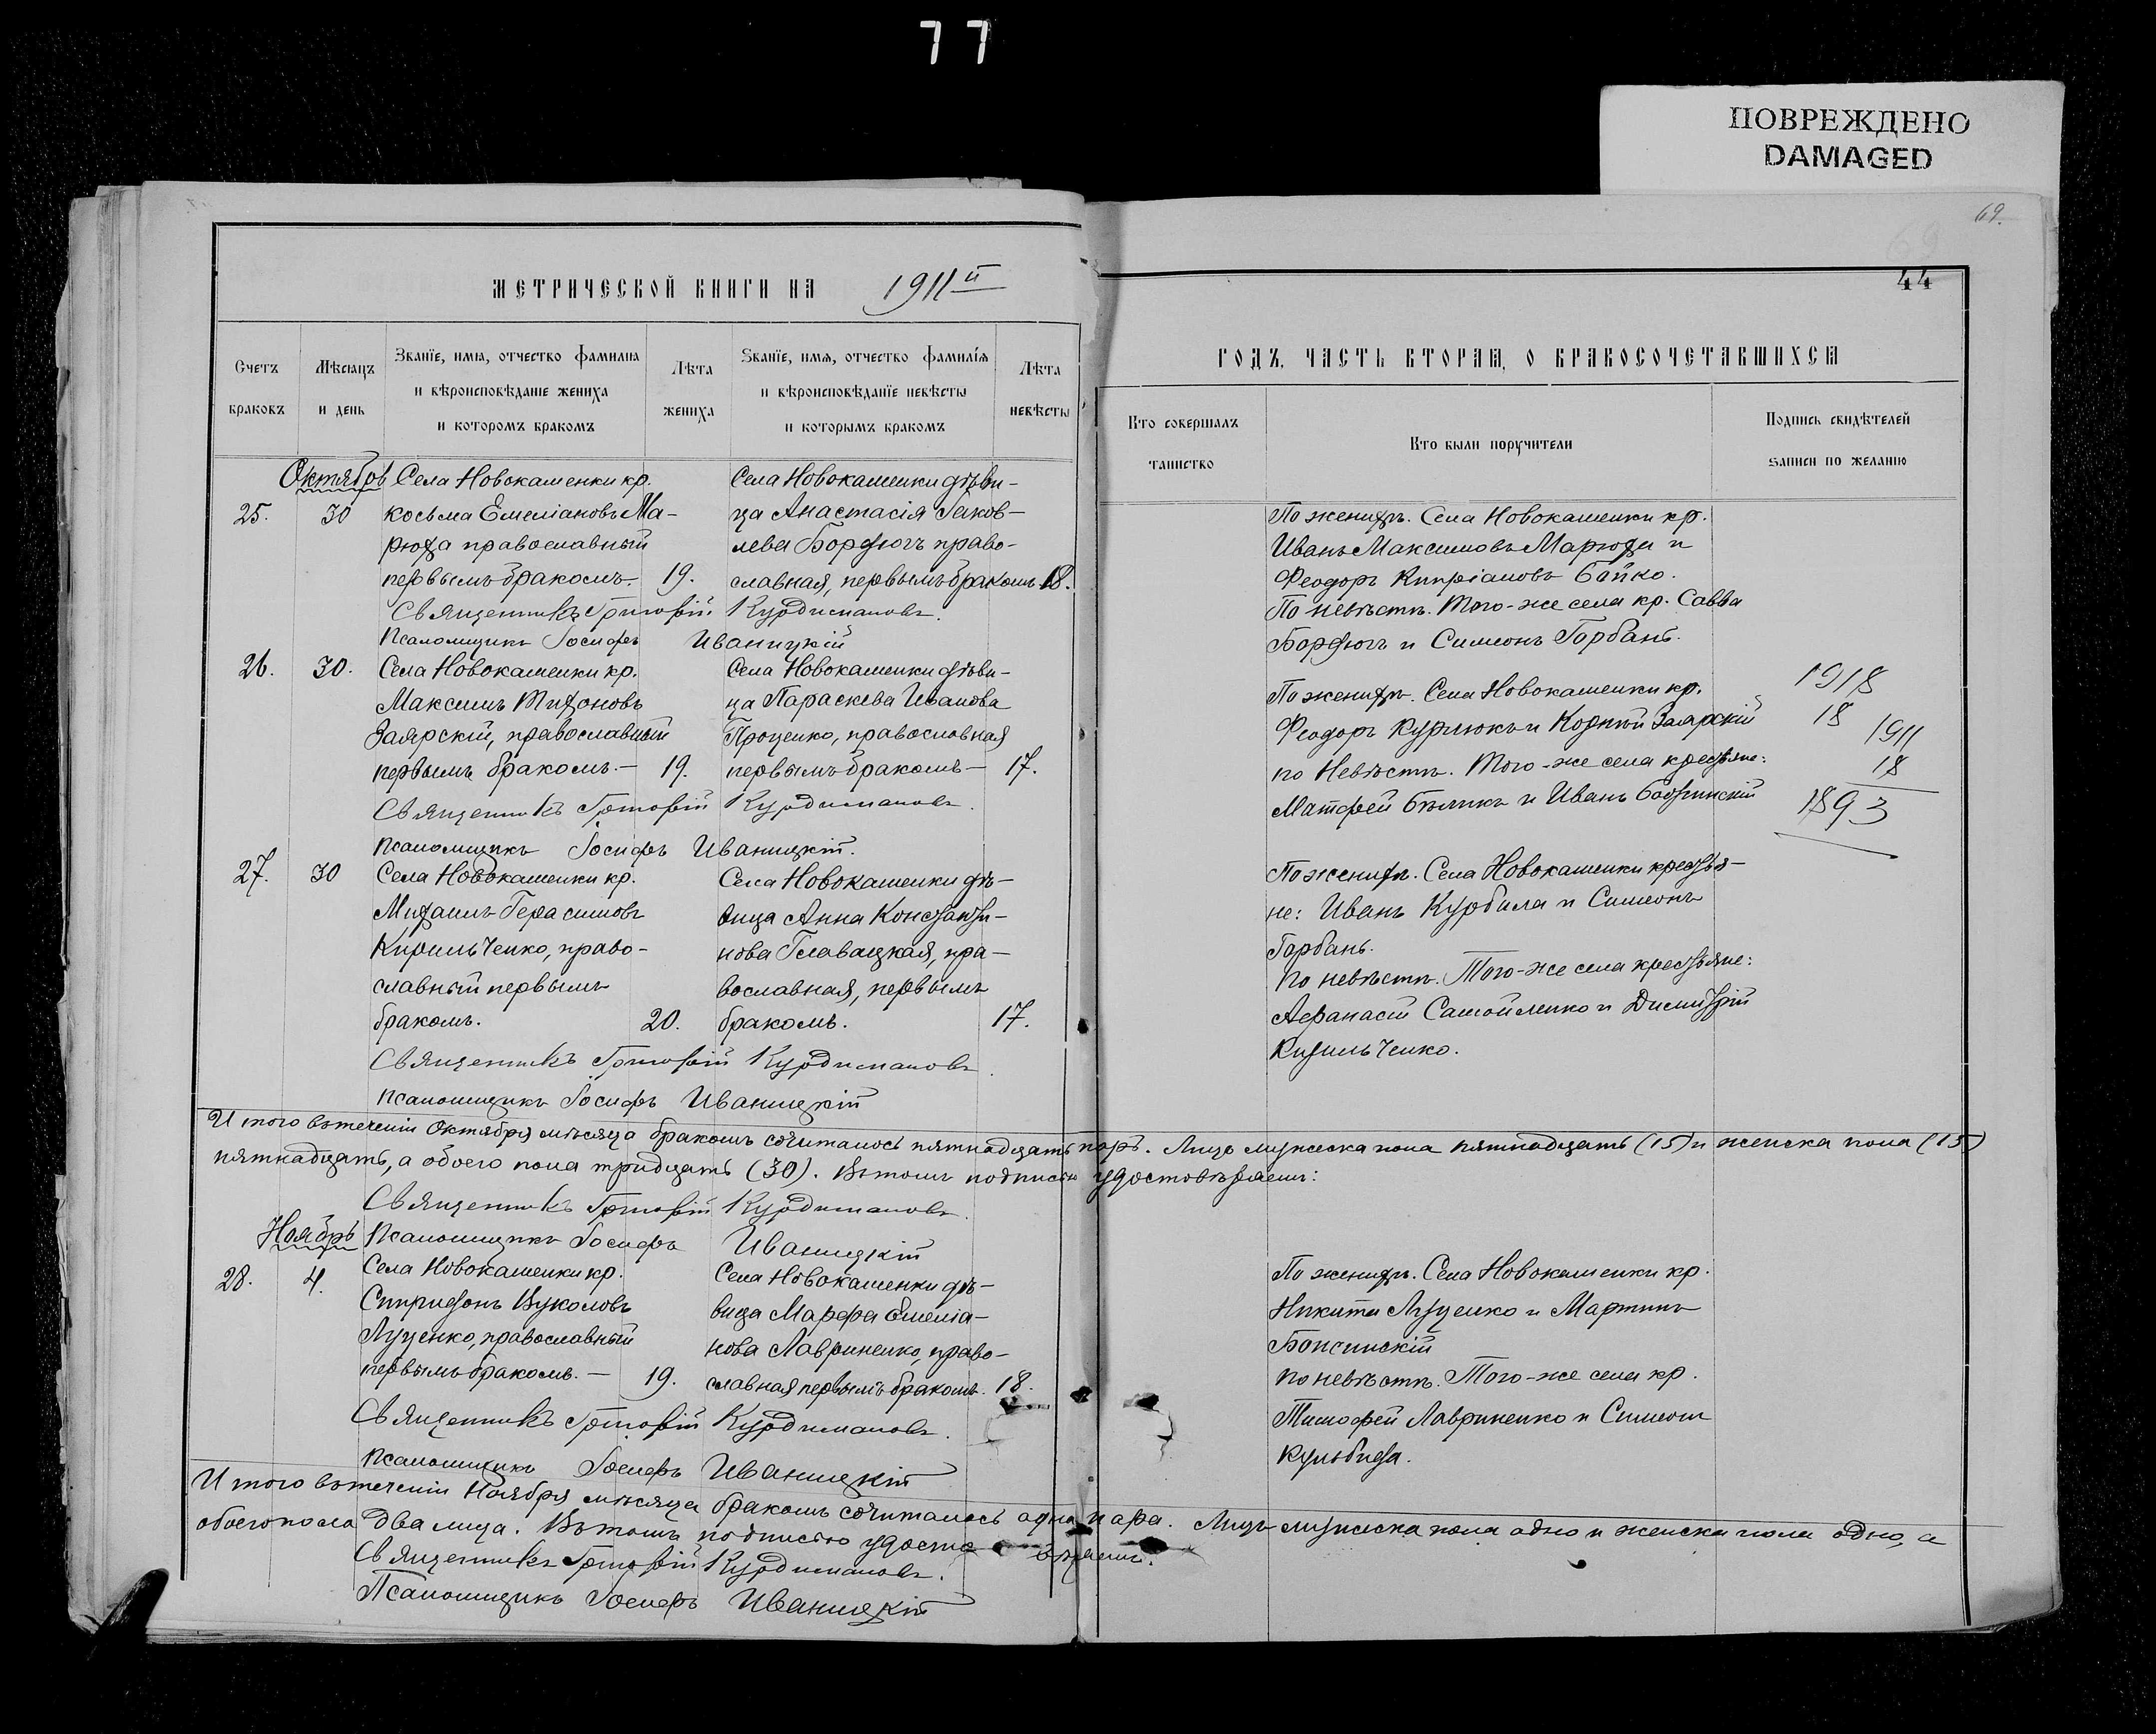 77
ПОВРЕЖДЕНО
DAMAGED
69.
44
МЕТРИЧЕСКОЙ КНИГИ НА 1911й
Счетъ браковъ
Мѣсяцъ и день
Званїе, имя, отчество фамилия
и вѣроисповѣданїе жениха
и которомъ бракомъ
Лѣта жениха
Званїе, имя, отчество фамилїя
и вѣроисповѣданїе невѣсты
и которымъ бракомъ
Лѣта невѣсты
Октябрь Села Новокаменки кр.
25. 30 Косьма Емеліановъ Ма-
рюха православный
первымъ бракомъ 19.
Села Новокаменки дѣви-
ца Анастасія Іаков-
лева Бордюгъ право-
славная, первымъ бракомъ 18.
Священникъ Григорій Курдимановъ.
Псаломщикъ Іосифъ Иваницкій
26. 30. Села Новокаменки кр.
Максимъ Тихоновъ
Заярскій, православный
первымъ бракомъ.— 19.
Села Новокаменки дѣви-
ца Параскева Иванова
Проценко, православная
первымъ бракомъ— 17.
Священникъ Григорій Курдимановъ.
Псаломщикъ Іосифъ Иваницкій.
27. 30 Села Новокаменки кр.
Михаилъ Герасимовъ
Кирильченко, право-
славный первымъ
бракомъ. 20.
Села Новокаменки дѣ-
вица Анна Константи-
нова Главацкая, пра-
вославная, первымъ
бракомъ. 17.
Священникъ Григорій Курдимановъ.
Псаломщикъ Іосифъ Иваницкій
Итого въ теченіи Октября мѣсяца бракомъ сочиталось пятнадцать паръ. Лицъ мужеска пола пятнадцать (15) и женска пола (15)
пятнадцать, а обоего пола тридцать (30). Въ томъ подписью удостовѣряемъ:
Священникъ Григорій Курдимановъ.
Псаломщикъ Іосифъ Иваницкій
Ноябрь
28. 4. Села Новокаменки кр.
Спиридонъ Вуколовъ
Луценко, православный
первымъ бракомъ.— 19.
Села Новокаменки дѣ-
вица Марфа Емеліа-
нова Лавриненко, право-
славная первымъ бракомъ. 18.
Священникъ Григорій Курдимановъ.
Псаломщикъ Іосифъ Иваницкій
Итого въ теченіи Ноября мѣсяца бракомъ сочиталось одна пара. Лицъ мужеска пола одно и женска пола одно, а
обоего пола два лица. Въ томъ подписью удостовѣряемъ.
Священникъ Григорій Курдимановъ.
Псаломщикъ Іосифъ Иваницкій
ГОДЪ, ЧАСТЬ ВТОРАЯ, О БРАКОСОЧЕТАВШИХСЯ
Кто совершалъ таинство
Кто были поручители
Подпись свидѣтелей записи по желанию
По женихѣ. Села Новокаменки кр.
Иванъ Максимовъ Марюха и
Феодоръ Кипріановъ Бойко.
По невѣстѣ. Того-же села кр. Савва
Бордюгъ и Симеонъ Горбань.
По женихѣ. Села Новокаменки кр.
Феодоръ Курлюкъ и Корній Заярскій
по Невѣстѣ. Того-же села крестьяне:
Матфей Бѣликъ и Иванъ
1918
18
1911
18
1893
По женихѣ. Села Новокаменки крестья-
не: Иванъ Курбала и Симеонъ
Горбань.
По невѣстѣ. Того-же села крестьяне:
Афанасій Самойленко и Димитрій
Кирильченко.
По женихѣ. Села Новокаменки кр.
Никита Луценко и Мартинъ
По невѣстѣ. Того-же села кр.
Тимофей Лавриненко и Симеонъ
Кульбида.